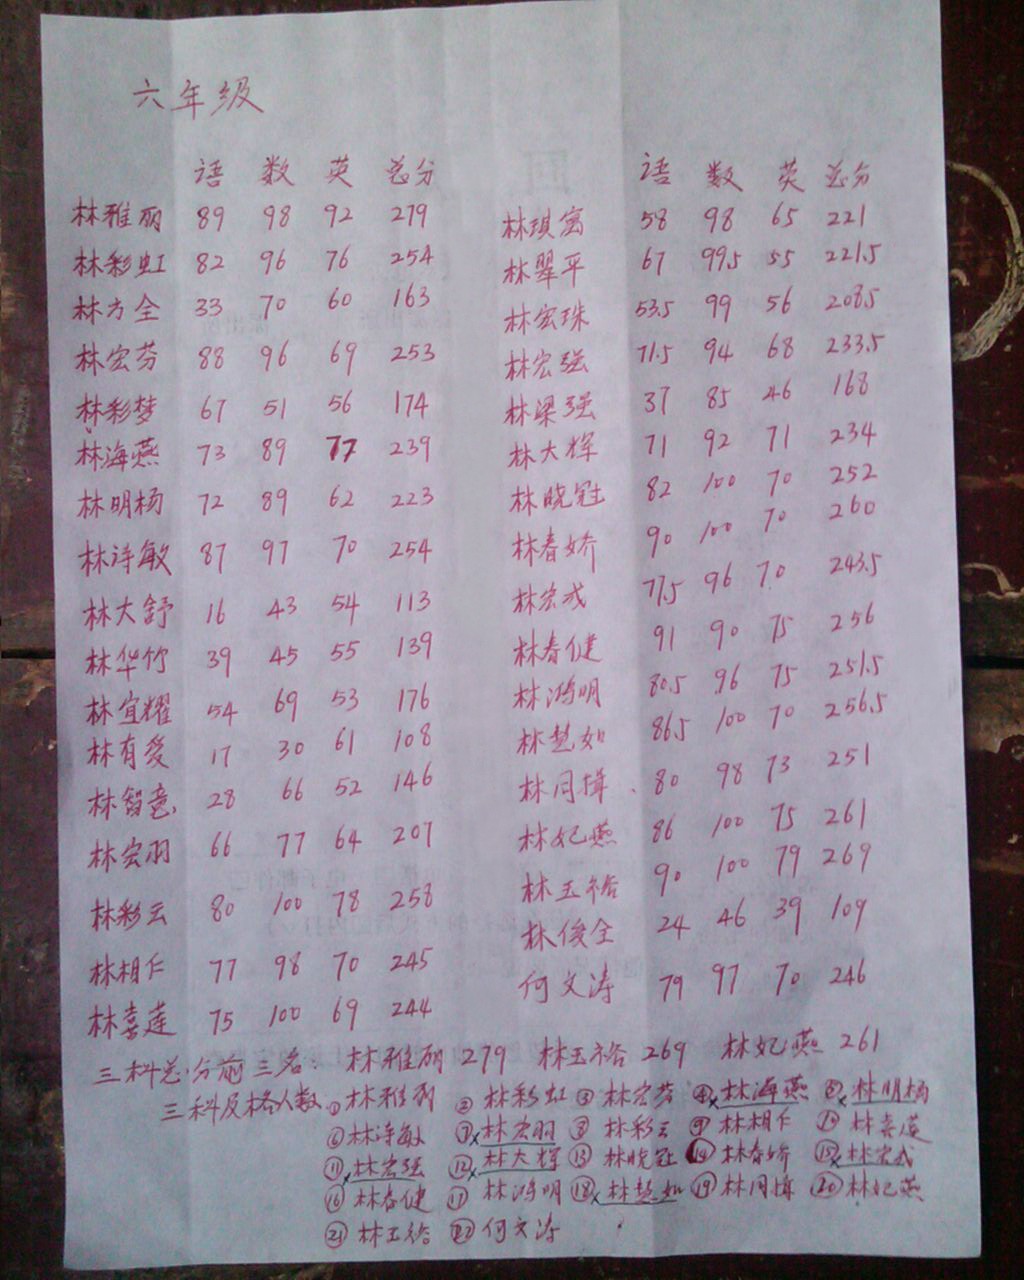 六年级
语 数 英 总分
林雅丽 89 98 92 279
林彩虹 82 96 76 254
林方全 33 70 60 163
林宏芬 88 96 69 253
林彩梦 67 51 56 174
林海燕 73 89 77 239
林明杨 72 89 62 223
林诗敏 87 97 70 254
林大舒 16 43 54 113
林华竹 39 45 55 139
林宜耀 54 69 53 176
林有 17 30 61 108
林智意 28 66 52 146
林宏羽 66 77 64 207
林彩云 80 100 78 258
林相仁 77 98 70 245
林喜莲 75 100 69 244
语 数 英 总分
林琪富 58 98 65 221
林翠平 67 99.5 55 221.5
林宏珠 53.5 99 56 208.5
林宏强 71.5 94 68 233.5
林梁强 37 85 46 168
林大辉 71 92 71 234
林晓冠 82 100 70 252
林春娇 90 100 70 260
林宏成 77.5 96 70 243.5
林春健 91 90 75 256
林鸿明 80.5 96 75 251.5
林慧如 86.5 100 70 256.5
林同楫 80 98 73 251
林妃燕 86 100 75 261
林玉裕 90 100 79 269
林俊全 24 46 39 109
何文涛 79 97 70 246
三科总分前三名: 林雅丽 279 林玉裕 269 林妃燕 261
三科及格人数 ①林雅丽 ②林彩虹 ③林宏芬 ④林海燕 ⑤林明杨
⑥林诗敏 ⑦林宏羽 ⑧林彩云 ⑨林相仁 ⑩林喜莲
⑪林宏强 ⑫林大辉 ⑬林晓冠 ⑭林春娇 ⑮林宏成
⑯林春健 ⑰林鸿明 ⑱林慧如 ⑲林同楫 ⑳林妃燕
㉑林玉裕 ㉒何文涛